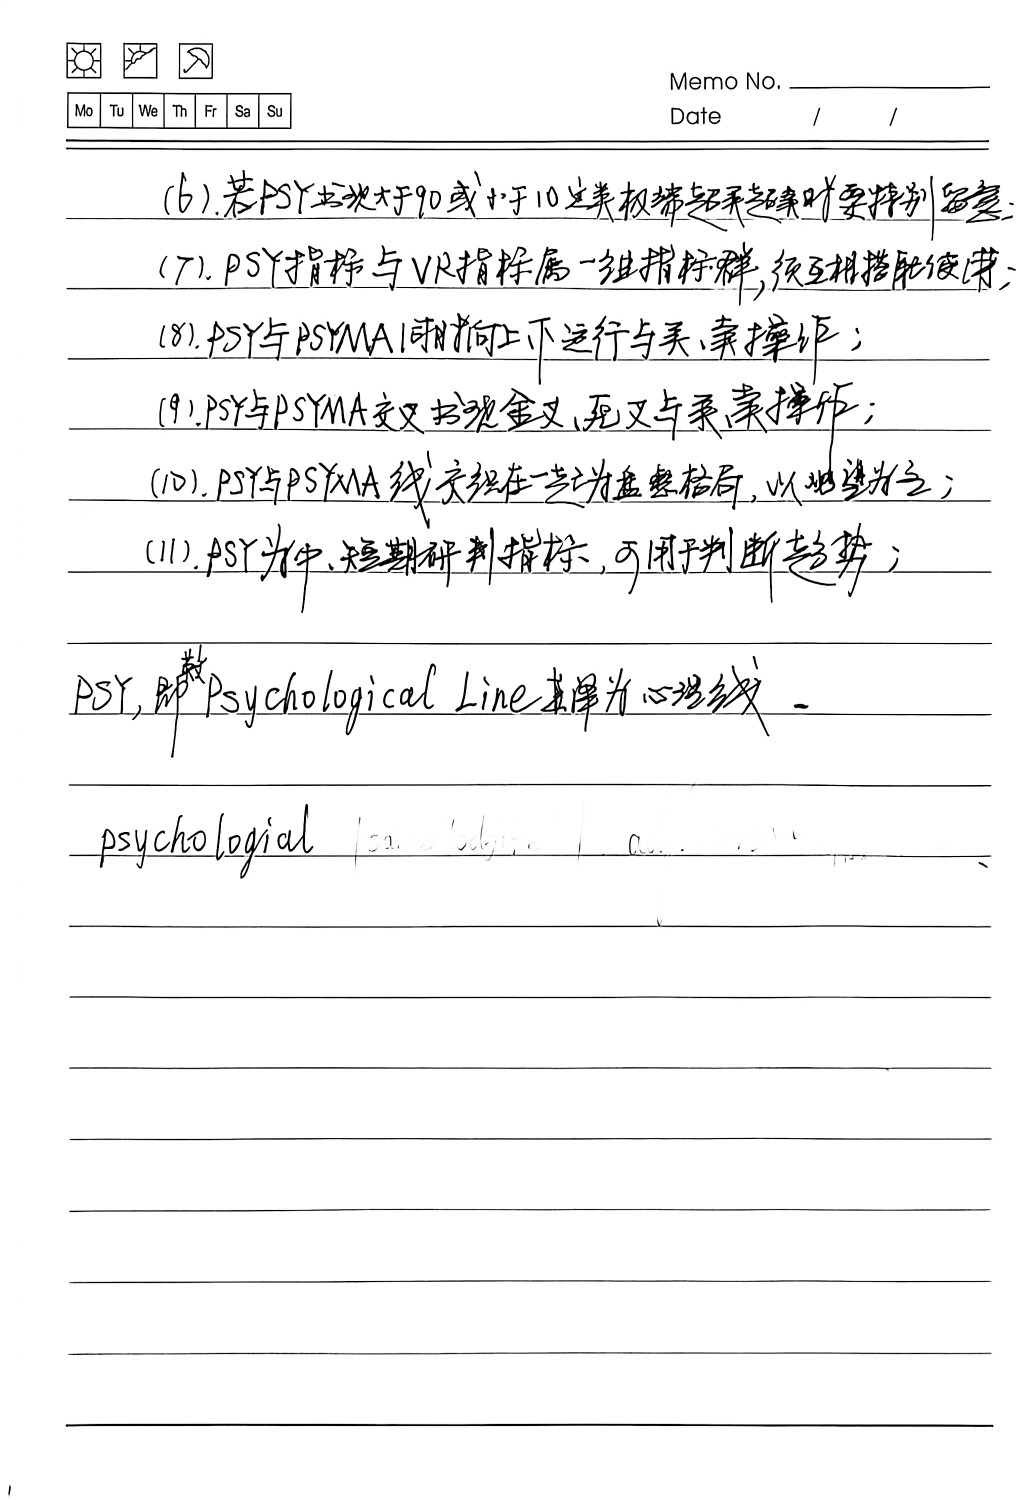 Memo No.
Mo Tu We Th Fr Sa Su
Date / /
(6).若PSY出现大于90或小于10这类极端超买超卖时要特别留意;
(7).PSY指标与VR指标属一组指标群,须互相搭配使用;
(8).PSY与PSYMA同时向上下运行与买、卖操作;
(9).PSY与PSYMA交叉出现金叉、死叉与买、卖操作;
(10).PSY与PSYMA线交织在一起为盘整格局,以观望为主;
(11).PSY为中、短期研判指标,可用于判断趋势;
PSY,即Psychological Line直译为心理线.
psychologial